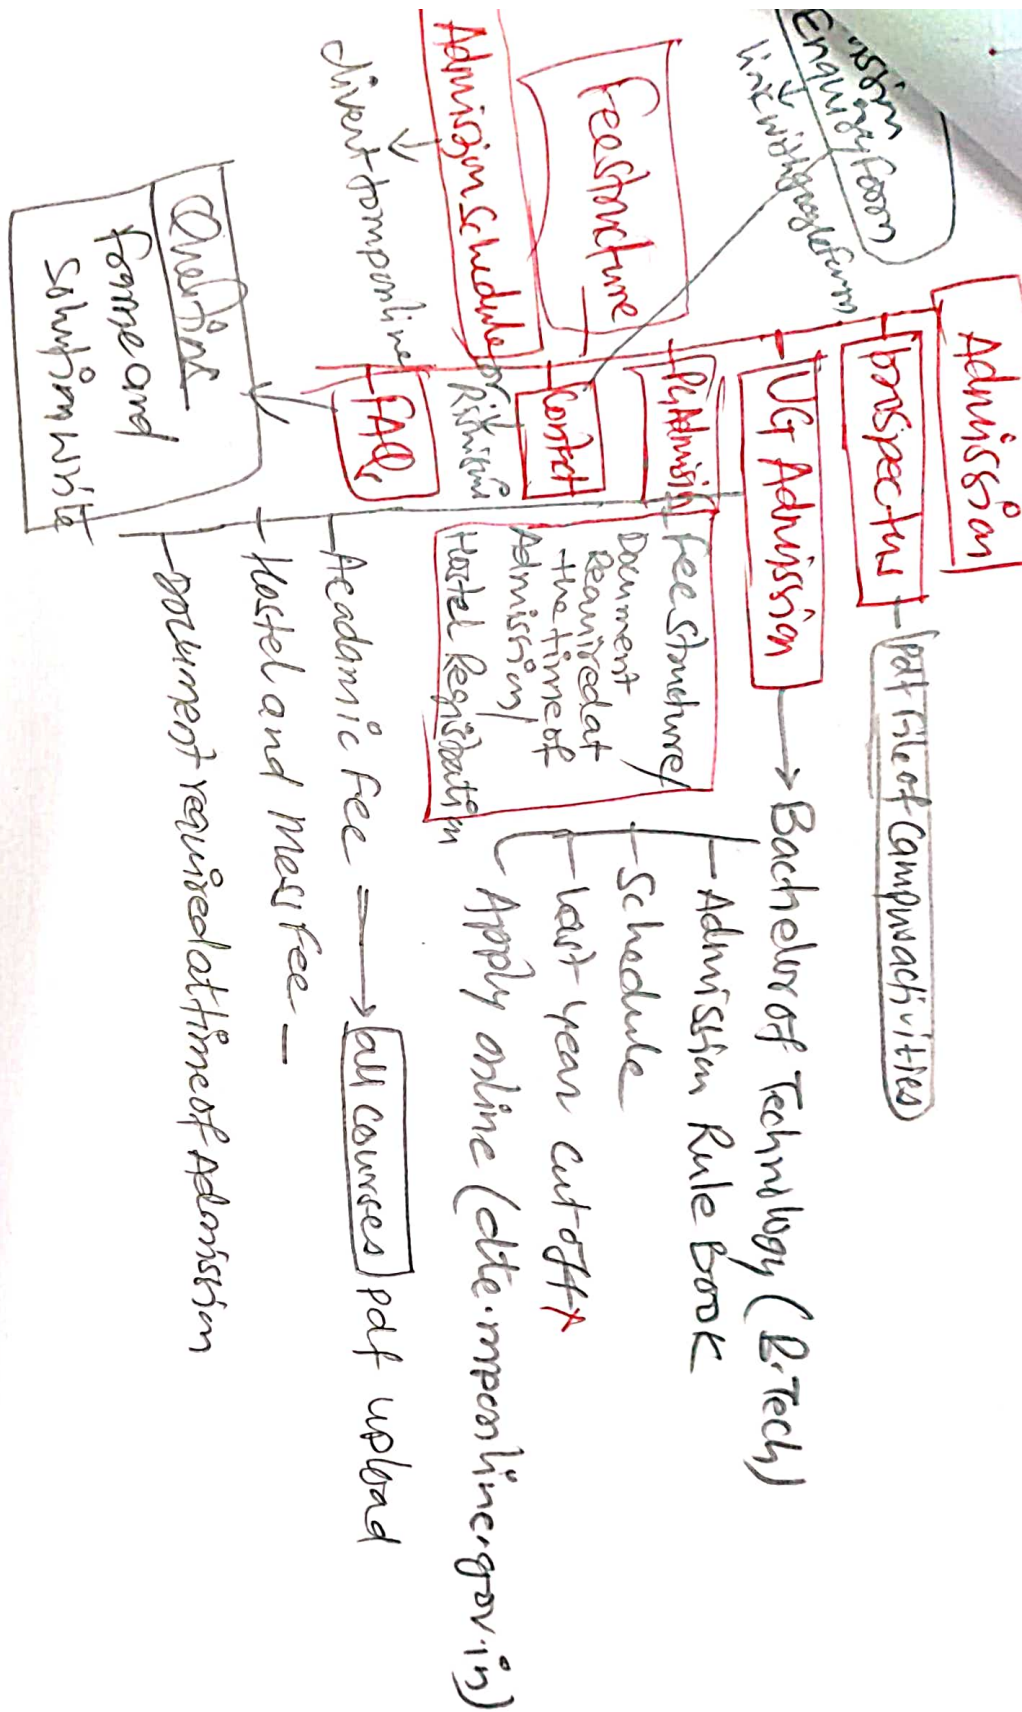 Admission
prospectus
pdf file of Campus activities
UG Admission
Bachelor of Technology (B.Tech)
Admission Rule Book
Schedule
Last year cutoff
Apply online (dte.mponline.gov.in)
PG Admission
Fee structure/
Document
Required at
the time of
Admission/
Hostel Registration
Contact
FAQs
Acadamic fee
all courses
pdf upload
Hostel and Mess fee
Document required at time of Admission
Enquiry Form
link with google form
Fee structure
Admission schedule
divert to mponline
for
Form and
solution write